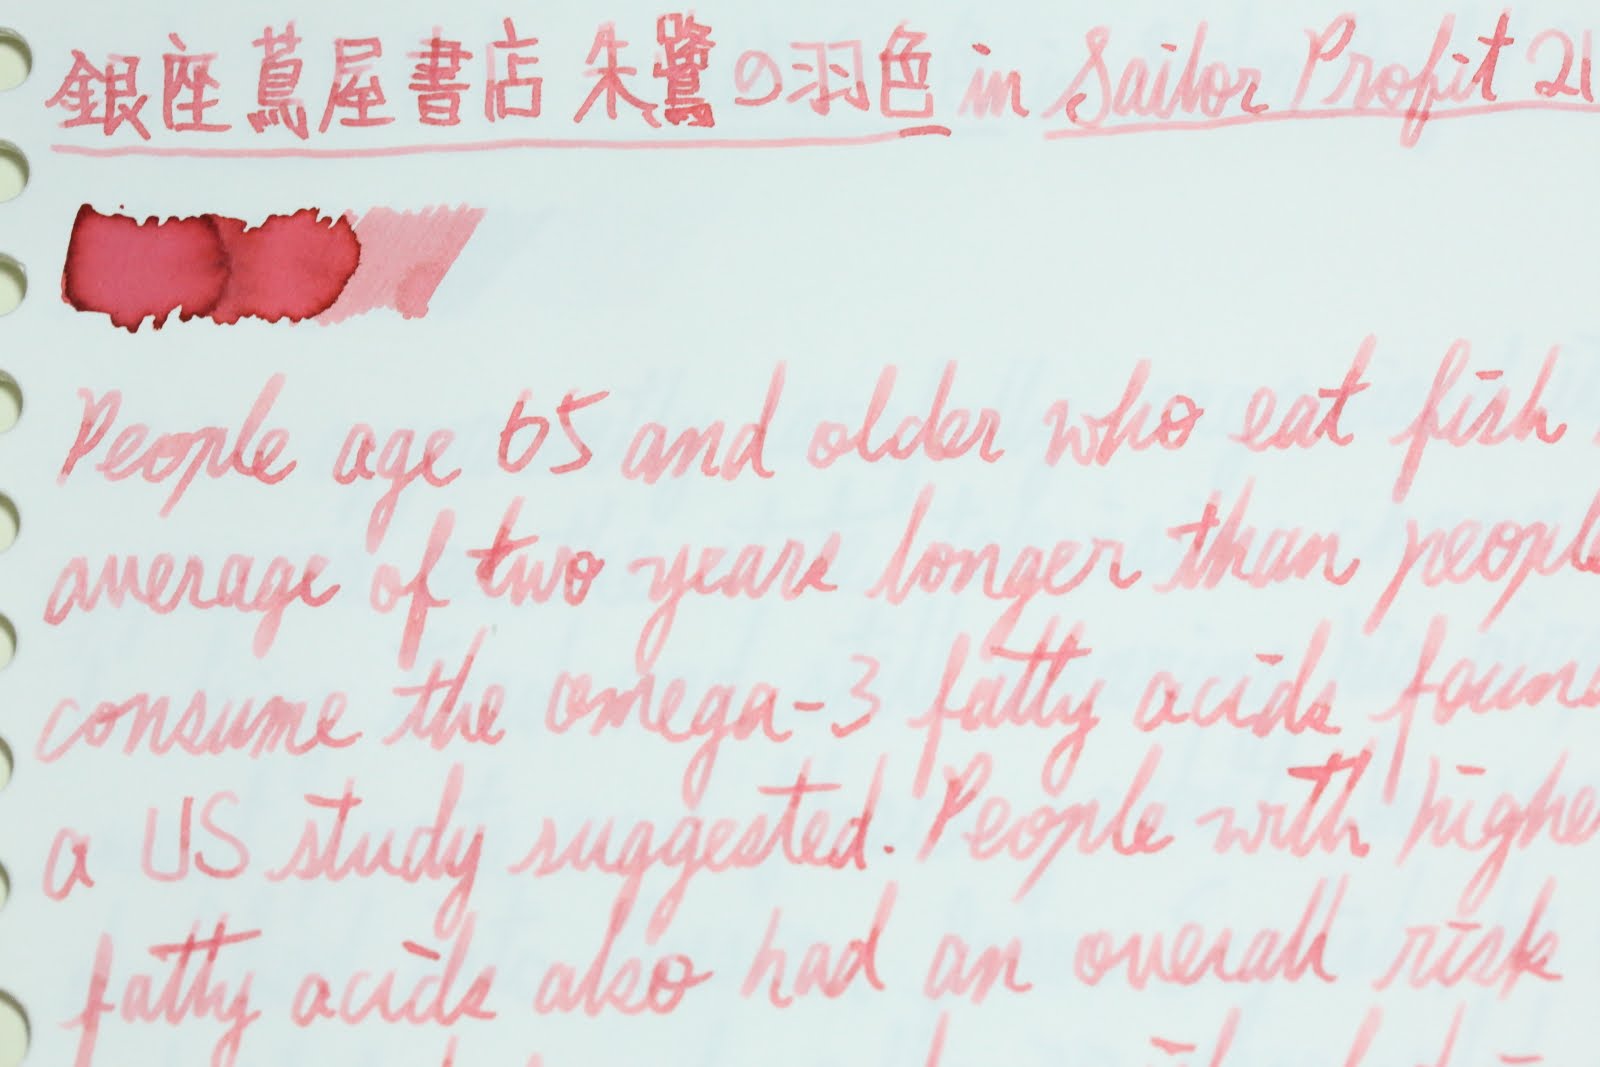 銀座蔦屋書店 朱鷺の羽色 in Sailor Profit 21
People age 65 and older who eat fish
average of two years longer than people
consume the omega-3 fatty acids found
a US study suggested. People with higher
fatty acids also had an overall risk